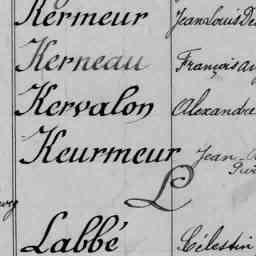 Kermeur Jean Louis De
Kerneau François Au
Kervalon Alexandre
Keurmeur Jean
L
Labbé Célestin